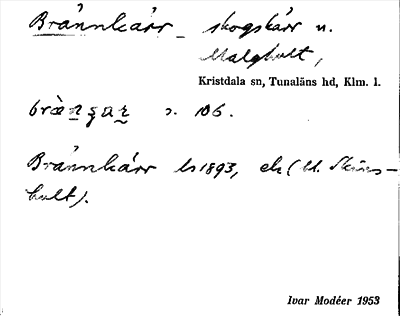 Brånnkärr skogskärr n.
Malghult,
Kristdala sn, Tunaläns hd, Klm. l.
s. 106.
Brånnkärr ls 1893, ek (bl.
hult).
Ivar Modéer 1953